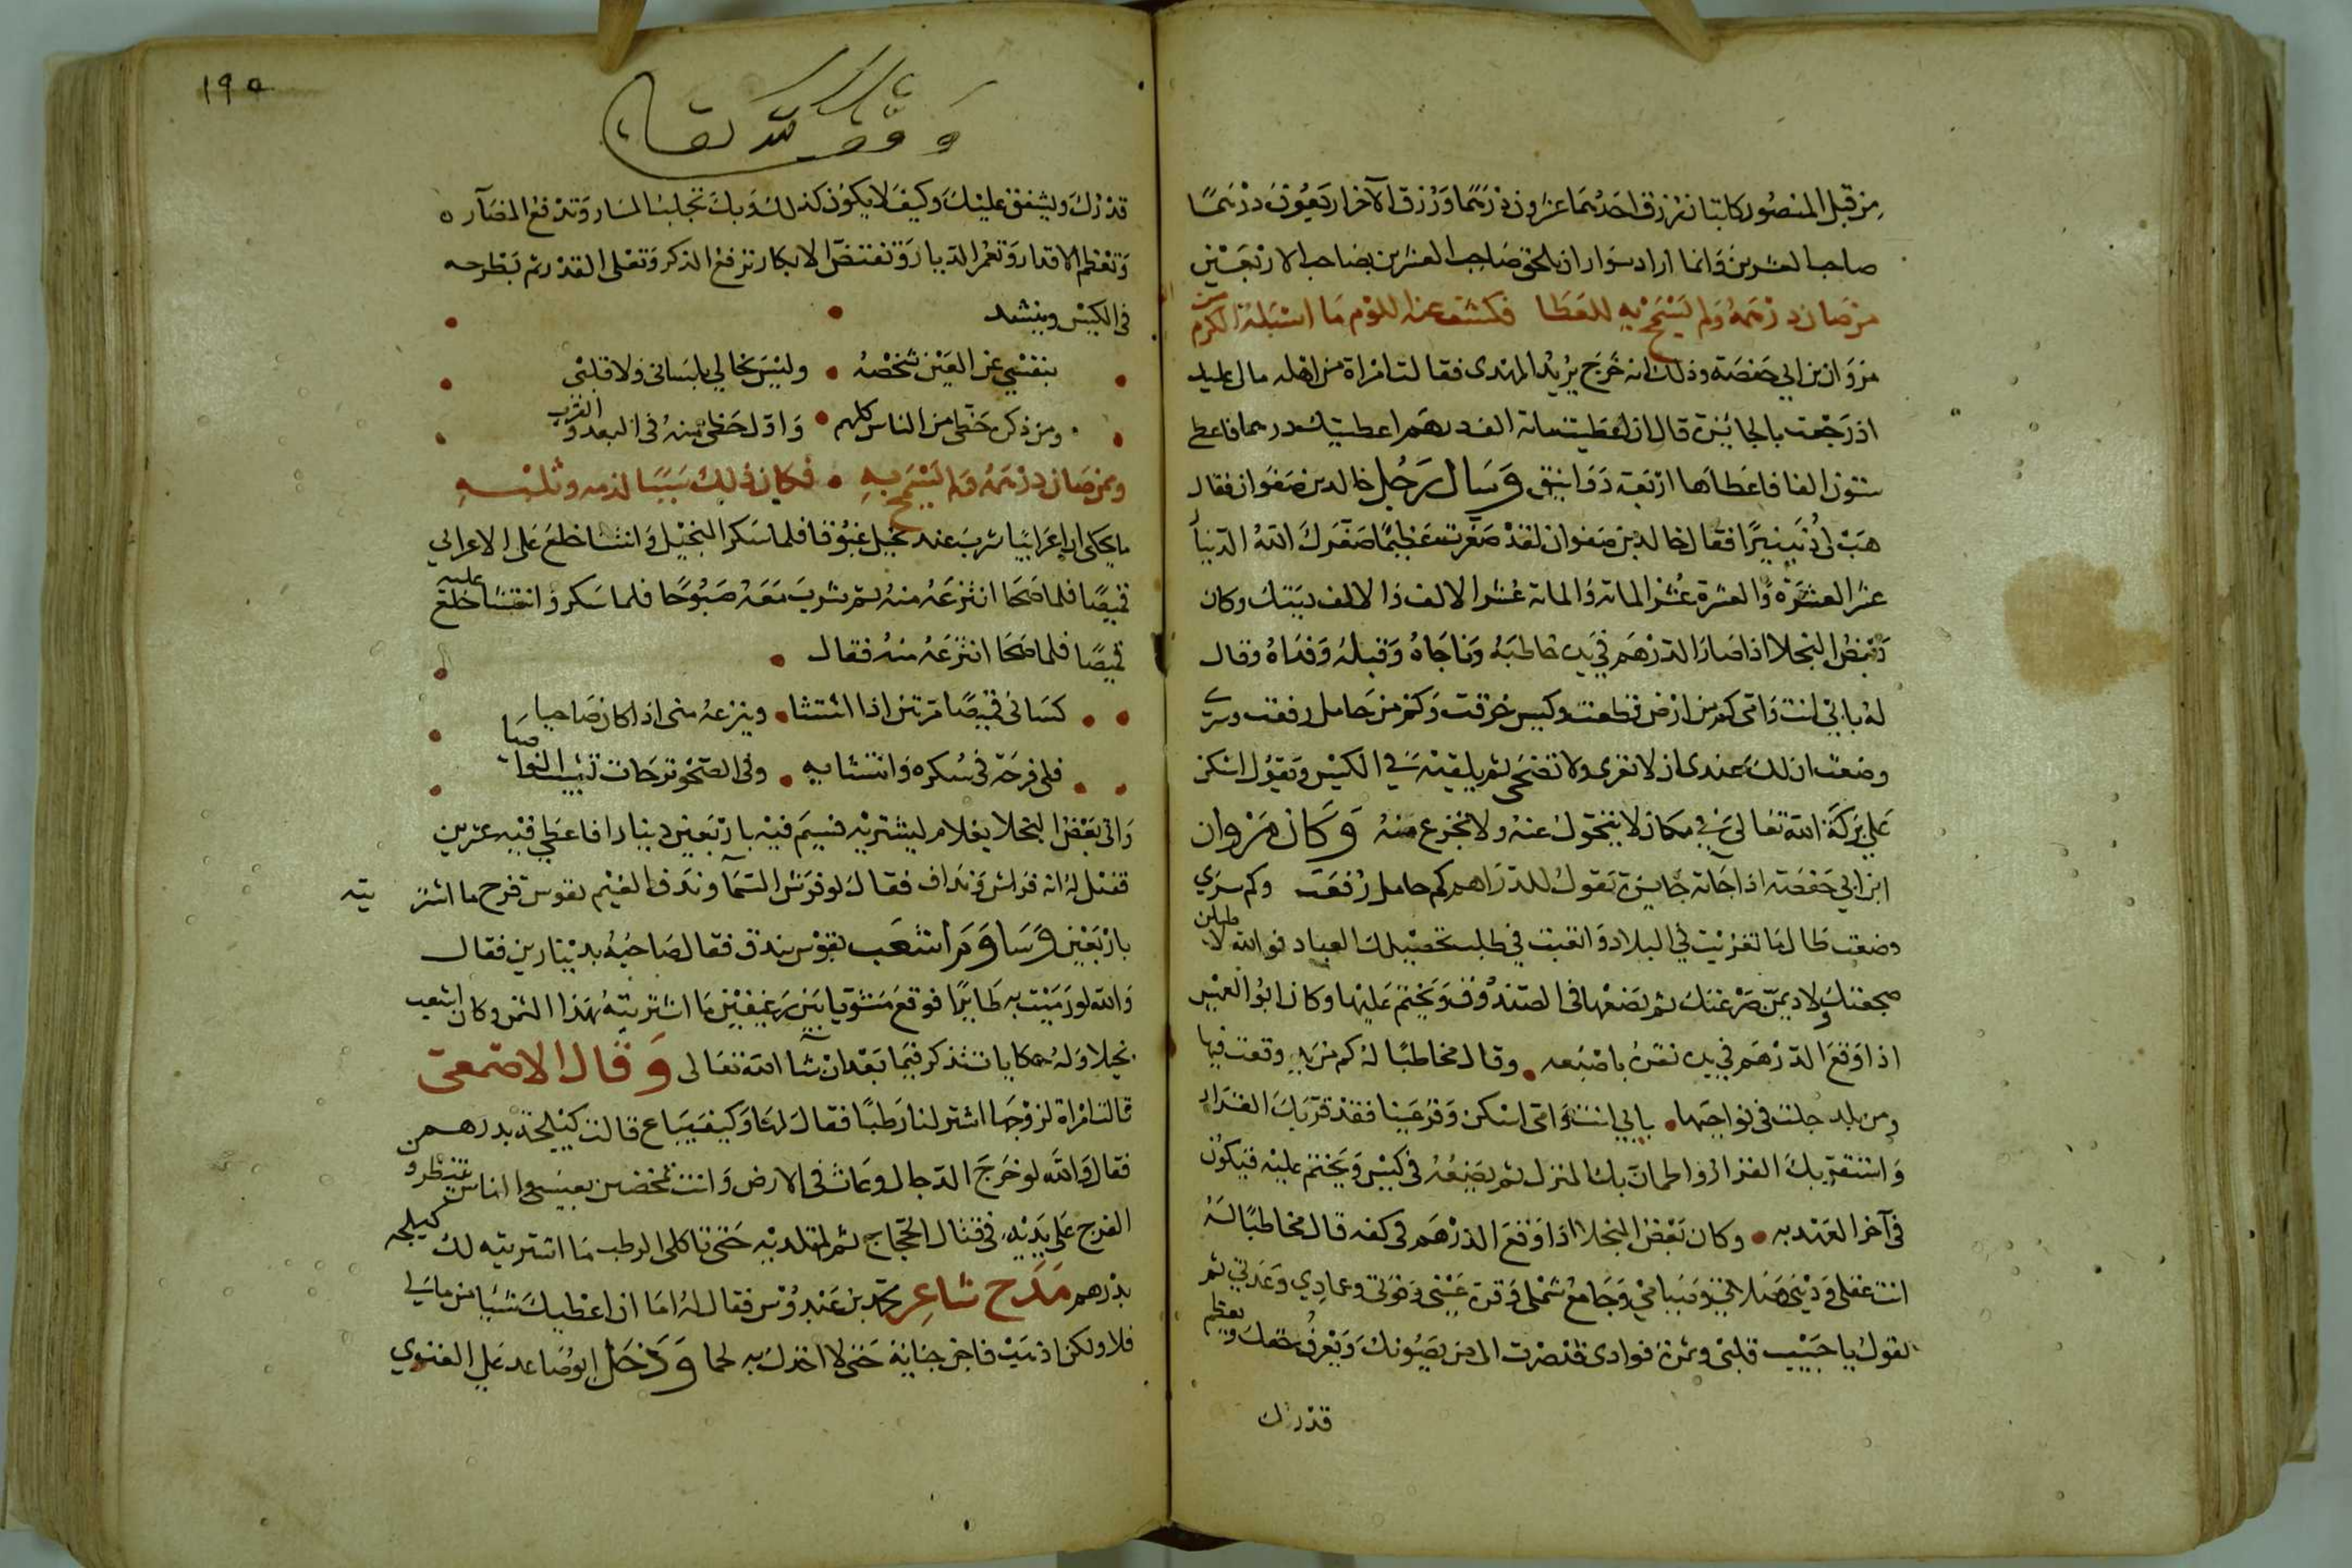 من قبل المنصور كاتبان رزق احدهما عشرون درهما ورزق الآخر اربعون درهمًا
صاحب العشرين وانما اراد سوار ان يلحق صاحب العشرين بصاحب الاربعين
من صان درهمه ولم يسمح به للعطا فكشف عنه اللوم ما اسبله الكرم
مروان بن ابي حفصة وذلك انه خرج يريد المهدى فقالت امراة من اهله مالى عليك
اذ رجعت بالجائزة قال ان اعطيت ماية الف درهم اعطيتك درهما فاعطى
ستون الفا فاعطاها اربعة دوانيق وسال رجل خالد بن صفوان فقال
هب لى دنينيرًا فقال خالد بن صفوان لقد صغرت عظيمًا صغرك الله الدنيا
عشر العشرة والعشرة عشر الماية والماية عشر الالف والالف ديتك وكان
بعض البخلا اذا صار الدرهم في يده خاطبه وناجاه وقبله وفداه وقال
له بابي انت وامى كم من ارض قطعت وكيس خرقت وكم من خامل رفعت وسرى
وضعت ان لك عندى ان لا تعرى ولا تضحى ثم يلقيه في الكيس ويقول اسكن
على بركة الله تعالى في مكان لا تتحول عنه ولا تخرج منه وكان مروان
ابن ابي حفصة اذا جاته جايزة يقول للدراهم كم خامل رفعت وكم سري
وضعت طال ما تغربت في البلاد واتعبت في طلب تحصيلك العباد فوالله لاطيلن
ضجعتك ولاديمن صرعتك ثم يضعها في الصندوق ويختم عليها وكان ابو العيبر
اذا وقع الدرهم في يده نقره باصبعه وقال مخاطبًا له كم من يد وقعت فيها
ومن بلد جلت في نواحيها بابي انت وامى اسكن وقر عينا فقد قر بك القرار
واستقر بك القرار واطمان بك المنزل ثم يضعه في كيس ويختم عليه فيكون
في آخر العهد به وكان بعض البخلا اذا وقع الدرهم في كفه قال مخاطبًا له
انت عقلي وديني وصلاتي وصيامي وجامع شملي وقرة عيني وقوتي وعمادي وعدتي ثم
يقول يا حبيب قلبي وثمرة فوادى قد صرت الى من يصونك ويعرف حقك ويعظم
قدرك
١٩٥
وقف لله تعالى
قدرك ويشفق عليك وكيف لا يكون كذلك وبك تجلب المسار وتدفع المضار
وتعظم الاقدار وتعمر الديار وتفتض الابكار ترفع الذكر وتعلى القدر ثم يطرحه
في الكيس وينشد
بنفسي عن العين شخصه وليس بخالي بلساني ولا قلبي
ومن ذكره حظى من الناس كلهم واول حظى منه في البعد والقرب
وممن صان درهمه ولم يسمح به فكان ذلك سببًا لذمه وثلبه
ما يحكى ان اعرابيًا شرب عند بخيل غبوقا فلما سكر البخيل وانتشا خلع على الاعرابي
قميصًا فلما صحا انتزعه منه ثم شرب معه صبوحًا فلما سكر وانتشا خلع عليه
قميصًا فلما صحا انتزعه منه فقال
كساني قميصًا مرتين اذا انتشا وينزعه منى اذا كان صاحيا
فلى فرحة في سكره وانتشايه وفي الصحو ترحات تشيب النواصيا
واتى بعض البخلا بغلام ليشتريه فسيم فيه باربعين دينارا فاعطي فيه عشرين
فقيل له انه فراش ونداف فقال لو فرش السما وندف الغيم بقوس قزح ما اشتريته
باربعين وساوم اشعب بقوس بندق فقال صاحبه بدينارين فقال
والله لو رميت به طايرًا فوقع مشويا بين رغيفين ما اشتريته بهذا الثمن وكان اشعب
بخيلا وله حكايات تذكر فيما بعد ان شا الله تعالى وقال الاصمعى
قالت امراة لزوجها اشتر لنا رطبًا فقال لها وكيف يباع قالت كيلجة بدرهم
فقال والله لو خرج الدجال وعاث في الارض وانت تمخضين بعيسى والناس ينتظرون
الفرج على يديه في قتال الدجال ثم لم تلديه حتى تاكلى الرطب ما اشتريته لك كيلجه
بدرهم مدح شاعر محمد بن عبدوس فقال له اما ان اعطيك شيئا من مالي
فلا ولكن اذهب فاجن جناية حتى لا اخذك به لحما ودخل ابو صاعد على الغنوي